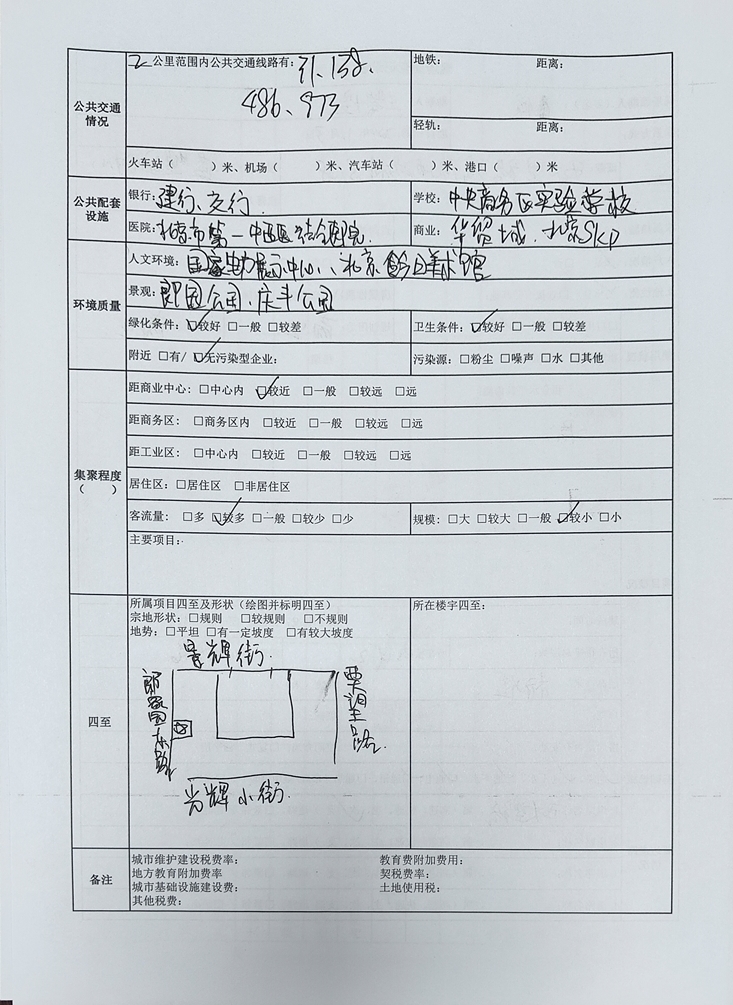 2 公里范围内公共交通线路有：31、138、
486、973
地铁： 距离：
公共交通
情况
轻轨： 距离：
火车站（ ）米、机场（ ）米、汽车站（ ）米、港口（ ）米
公共配套
设施
银行：建行、交行.
学校：中央商务区实验学校
医院：北京市第一中西医结合医院.
商业：华贸城、北京SKP
环境质量
人文环境：国家电力展示中心、北京今日美术馆
景观：郎园公园、庆丰公园
绿化条件：☑较好 □一般 □较差
卫生条件：☑较好 □一般 □较差
附近 □有/ ☑无污染型企业：
污染源：□粉尘 □噪声 □水 □其他
集聚程度
（ ）
距商业中心：□中心内 ☑较近 □一般 □较远 □远
距商务区：□商务区内 □较近 □一般 □较远 □远
距工业区：□中心内 □较近 □一般 □较远 □远
居住区：□居住区 □非居住区
客流量：□多 ☑较多 □一般 □较少 □少
规模：□大 □较大 □一般 ☑较小 □小
主要项目：
四至
所属项目四至及形状（绘图并标明四至）
宗地形状：□规则 □较规则 □不规则
地势：□平坦 □有一定坡度 □有较大坡度
景辉街.
郎家园东路
光辉小街.
所在楼宇四至：
备注
城市维护建设税费率： 教育费附加费用：
地方教育附加费率 契税费率：
城市基础设施建设费： 土地使用税：
其他税费：